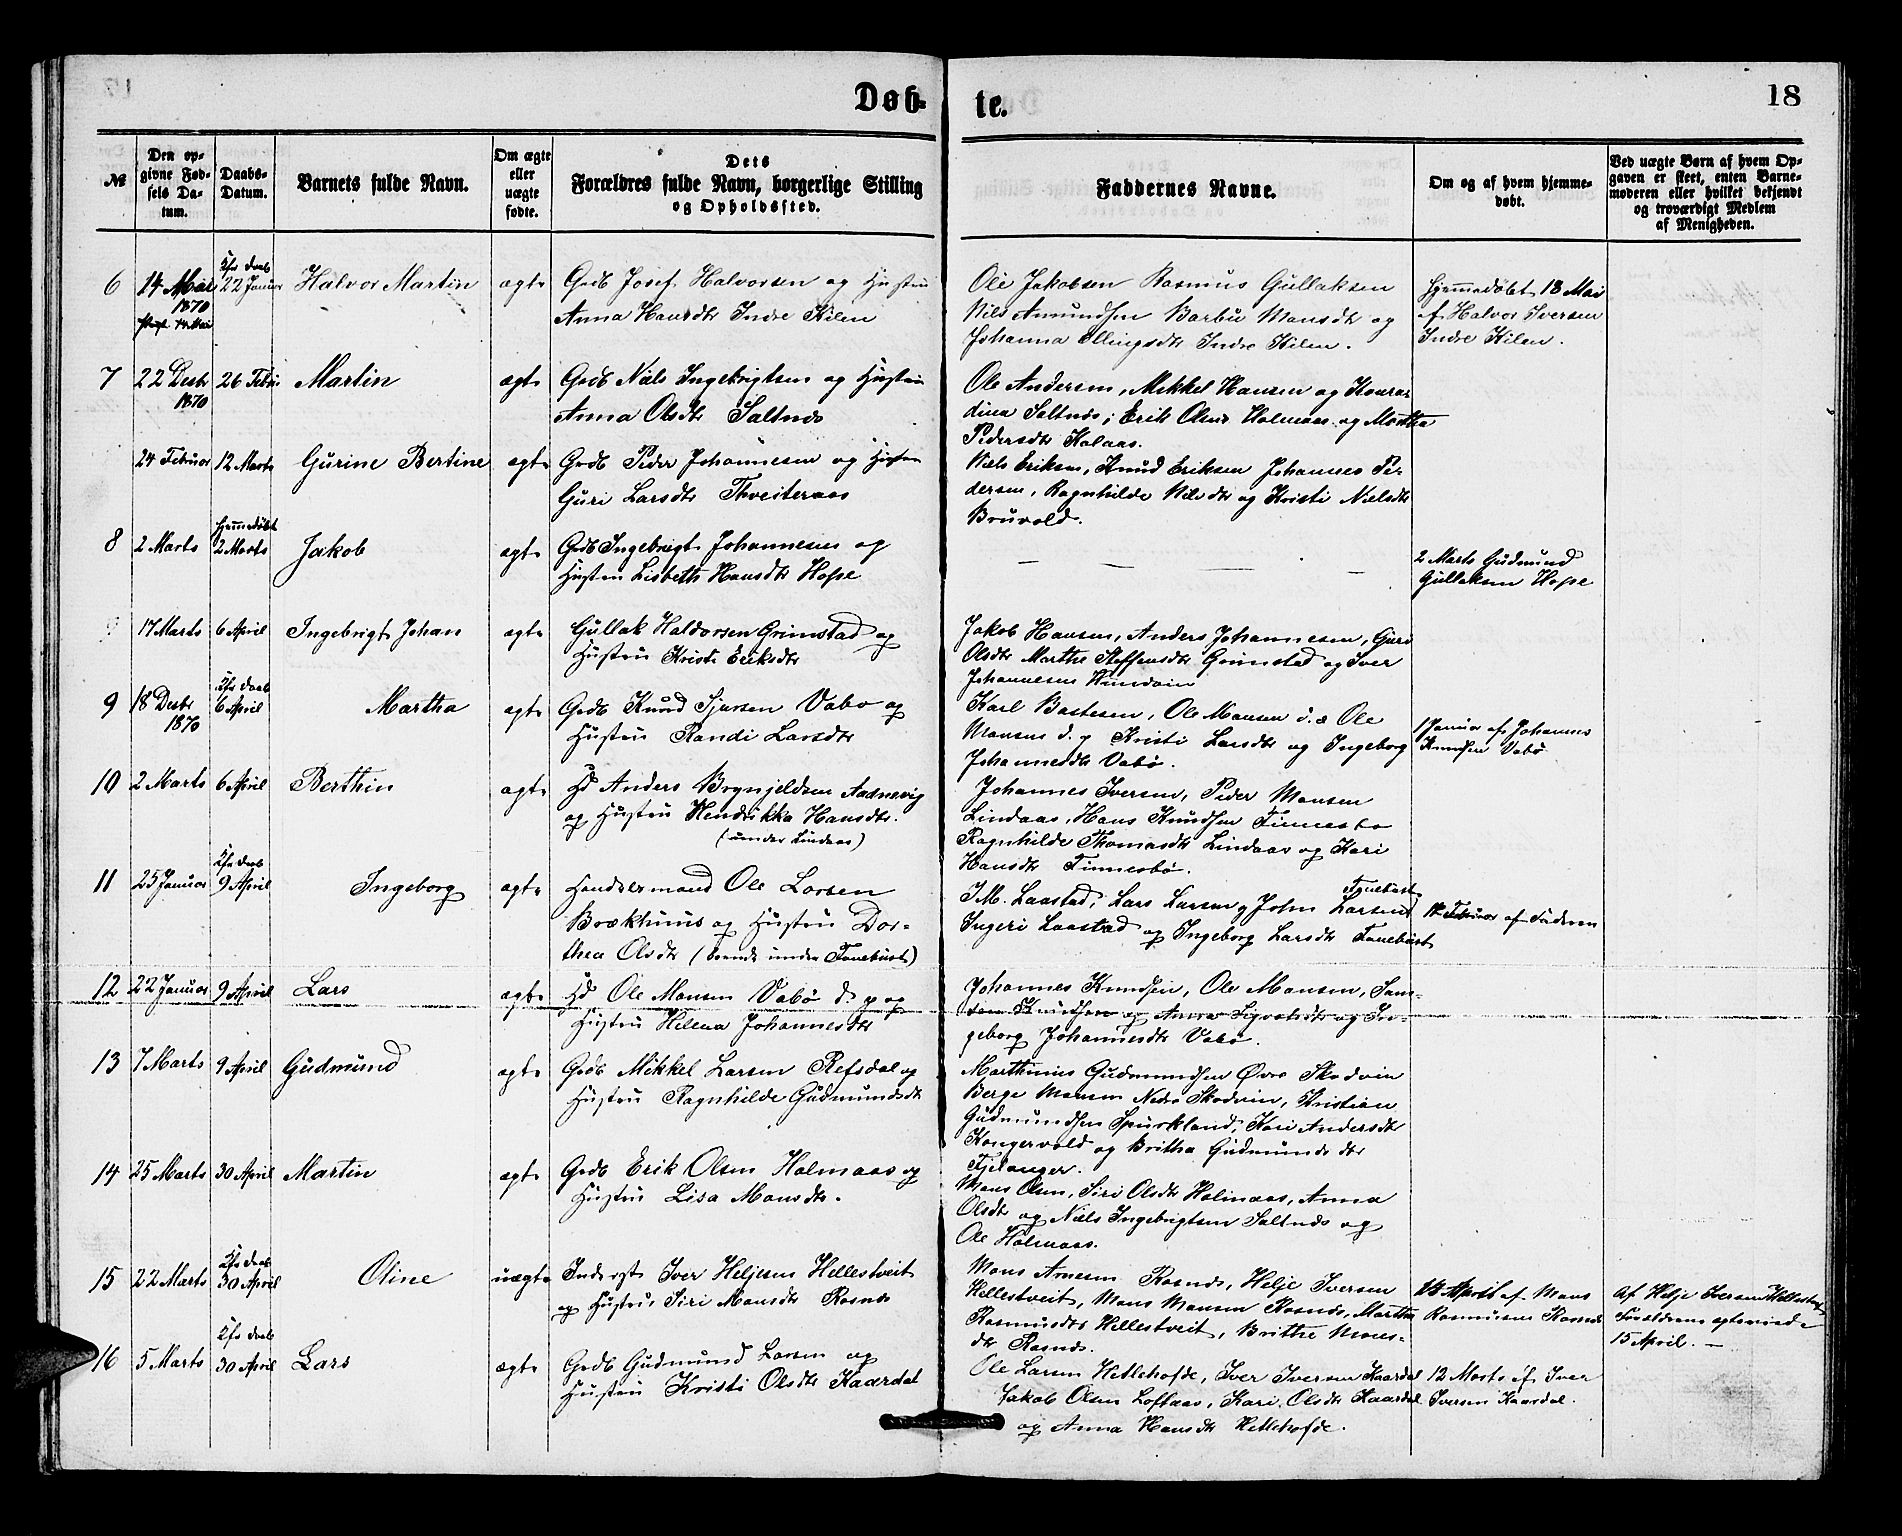 Døb-
te.
18
№
Den op-
givne Fød-
sels Da-
tum.
Daabs-
Datum.
Barnets fulde Navn.
Om ægte
eller
uægte
fødte.
Dets
Forældres fulde Navn, borgerlige Stilling
og Opholdssted.
Faddernes Navne.
Om og af hvem hjemme-
døbt.
Ved uægte Børn af hvem Op-
gaven er skeet, enten Barne-
moderen eller hvilket bekjendt
og troværdigt Medlem
af Menigheden.
6 14 Mai 1870 22 Januar Halvor Martin ægte
Grdb Josef Halvorsen og Hustru
Anna Hansdtr Indre Kilen
Ole Jakobsen Rasmus Gullaksen
Nils Amundsen Barbu Monsdtr og
Johanna Ellingsdtr Indre Kilen.
Hjemmedøbt 18 Mai
af Halvor Iversen
Indre Kilen.
7 22 Desbr 1870 26 Febr Martin ægte
Grdb Niels Ingebrigtsen og Hustru
Anna Olsdtr Saltnes
Ole Andersen, Mikkel Hansen og Konra-
dina Saltnes, Erik Olsen Holmaas og Martha
Pedersdtr Kolaas.
24 Februar 12 Marts Gurine Bertine ægte
Grdb Peder Johannesen og Hustru
Guri Larsdtr Thveiteraas
Niels Eriksen, Knud Eriksen Johannes Pe-
dersen, Ragnhilde Nilsdtr og Kristi Nielsdtr
Bruvold.
8 2 Marts hjemmedøbt 2 Marts Jakob ægte
Grdb Ingebrigt Johannesen og
Hustru Lisbeth Hansdtr Hope
— — — —
2 Marts Gudmund
Gullaksen Hope
17 Marts 6 April Ingebrigt Johan ægte
Gullak Haldorsen Grimstad og
Hustru Kristi Eriksdtr
Jakob Hansen, Anders Johannesen, Guri
Olsdtr Marthe Steffensdtr Grimstad og Iver
Johannesen Hundvin
9 18 Desbr 1870 6 April Martha ægte
Grdb Knud Sjursen Vabø og
Hustru Randi Larsdtr
Karl Bastesen, Ole Monsen d. æ Ole
Monsen d. y Kristi Larsdtr og Ingeborg
Johannesdtr Vabø.
1 Januar af Johannes
Knudsen Vabø
10 2 Marts 6 April Berthin ægte
Hd Anders Brynjeldsen Aadnevig
og Hustru Hendrikka Hansdtr.
(under Lindaas)
Johannes Iversen, Peder Monsen
Lindaas, Hans Knudsen Finnesbø
Ragnhilde Thomasdtr Lindaas og Kari
Hansdtr Finnesbø.
11 25 Januar 9 April Ingeborg ægte
Handelsmand Ole Larsen
Brækhuus og Hustru Dor-
thea Olsdtr (boende under Fonebust)
I M. Laastad, Lars Larsen og John Larsen Fonebust
Ingeri Laastad og Ingeborg Larsdtr Fonebust
Februar af Faderen
12 22 Januar 9 April Lars ægte
Hd Ole Monsen Vabø d. y og
Hustru Helena Johannesdtr
Johannes Knudsen, Ole Monsen, Sam-
son Knudsen og Anna Sigvetsdtr og In-
geborg Johannesdtr Vabø.
13 7 Marts 9 April Gudmund ægte
Grdb Mikkel Larsen Refsdal og
Hustru Ragnhilde Gudmundsdtr
Marthinus Gudmundsen Øvre Skodvin
Berge Monsen Nedre Skodvin, Kristian
Gudmundsen Spurkland, Kari Andersdtr
Kongervold og Britha Gudmundsdtr
Fjelanger.
14 25 Marts 30 April Martin ægte
Grdb Erik Olsen Holmaas og
Hustru Lisa Monsdtr.
Mons Olsen, Siri Olsdtr Holmaas, Anna
Olsdtr og Niels Ingebrigtsen Saltnes og
Ole Holmaas.
15 22 Marts 30 April Oline uægte
Inderst Iver Heljesen Hellestveit
og Hustru Siri Monsdtr Rosnes
Mons Arnesen Rosnes, Helje Iversen
Hellestveit, Mons Monsen Rosnes, Martha
Rasmusdtr Hellestveit, Brithe Mons-
dtr Rosnes.
April af Mons
Rasmusen Rosnes
Af Helje Iversen Hellestveit
Forældrene ægteviede
15 April. —
16 5 Marts 30 April Lars ægte
Grdb Gudmund Larsen og
Hustru Kristi Olsdtr Kaardal
Ole Larsen Hetlehofde, Iver Iversen Kaardal
Jakob Olsen Loftaas, Kari Olsdtr Kaardal
og Anna Hansdtr Hetlehofde.
12 Marts af Iver
Iversen Kaardal.